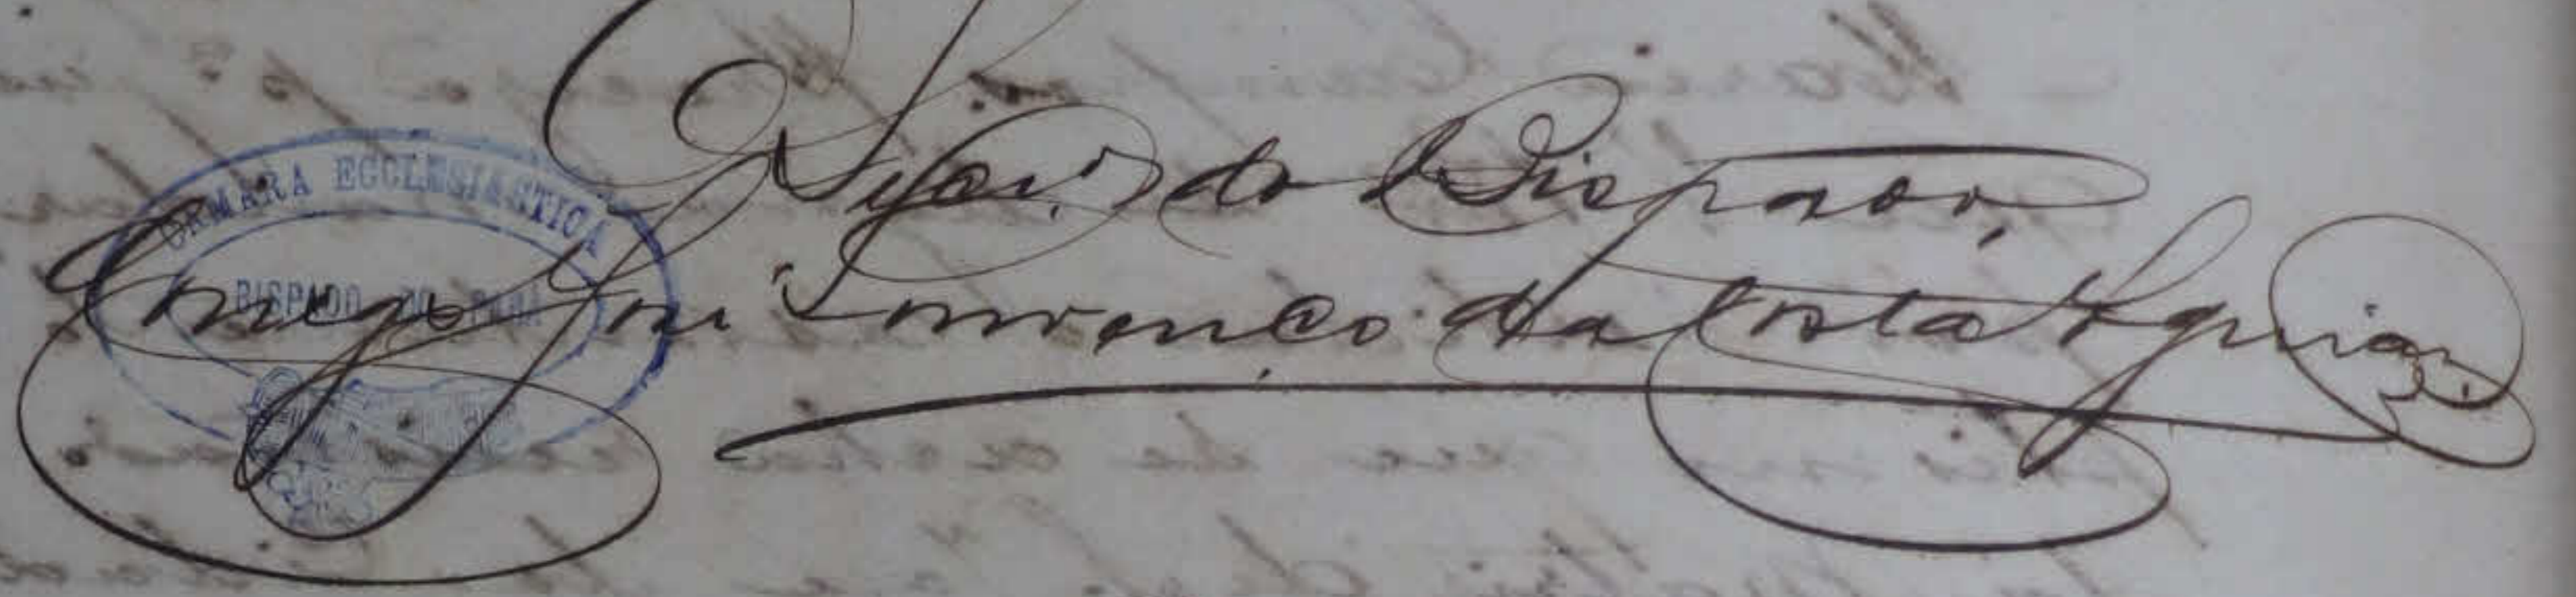 CAMARA ECCLESIASTICA
BISPADO DO PARÁ
do Bispado,
Conego José Lourenço da Costa Aguiar